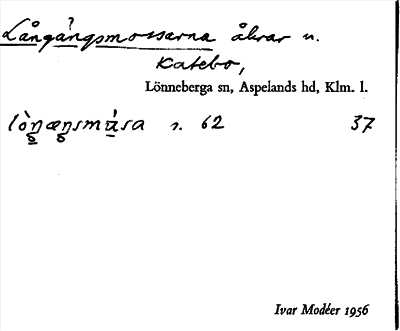 Långångsmossarna åkrar u.
Katebo,
Lönneberga sn, Aspelands hd, Klm. l.
s. 62 37
Ivar Modéer 1956